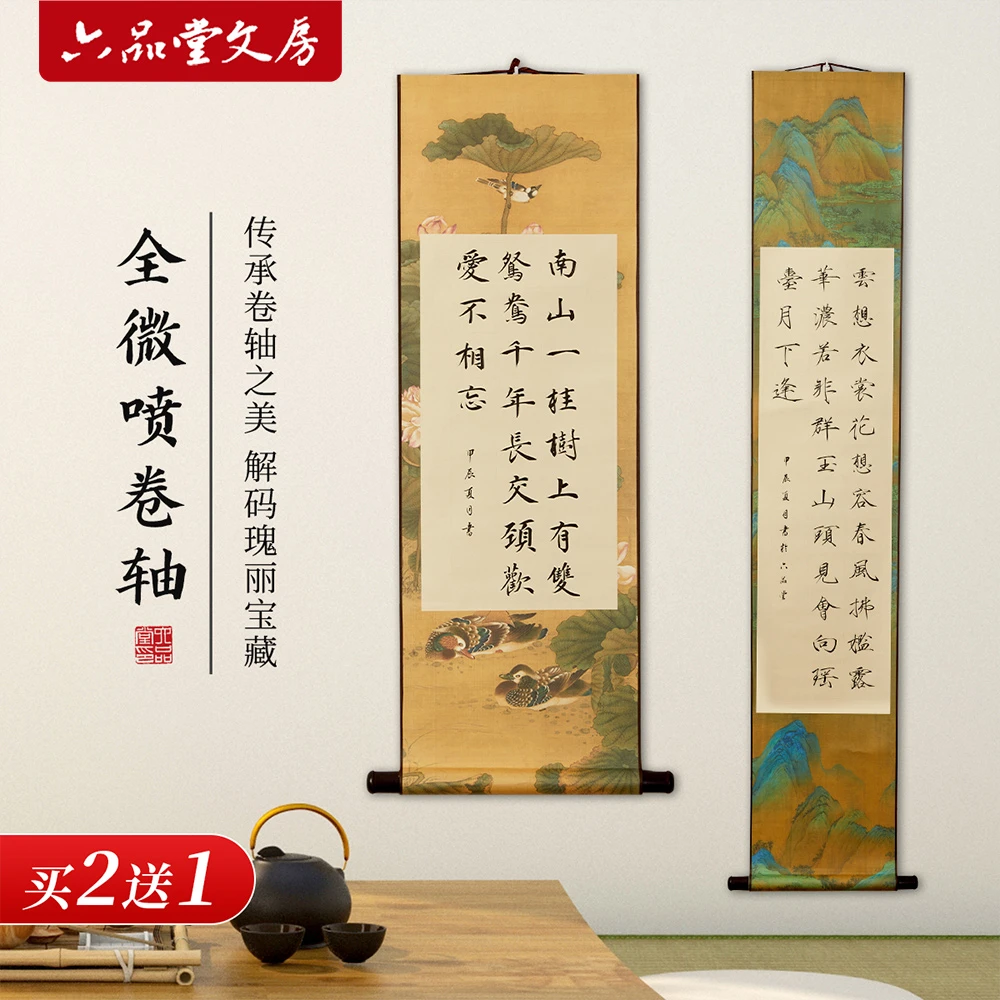 六品堂文房
传承卷轴之美 解码瑰丽宝藏
全微喷卷轴
六品
堂印
南山一桂樹上有雙
鴛鴦千年長交頸歡
愛不相忘
甲辰夏月書
雲想衣裳花想容春風拂檻露
華濃若非群玉山頭見會向瑶
臺月下逢
甲辰夏月書於六品堂
买2送1